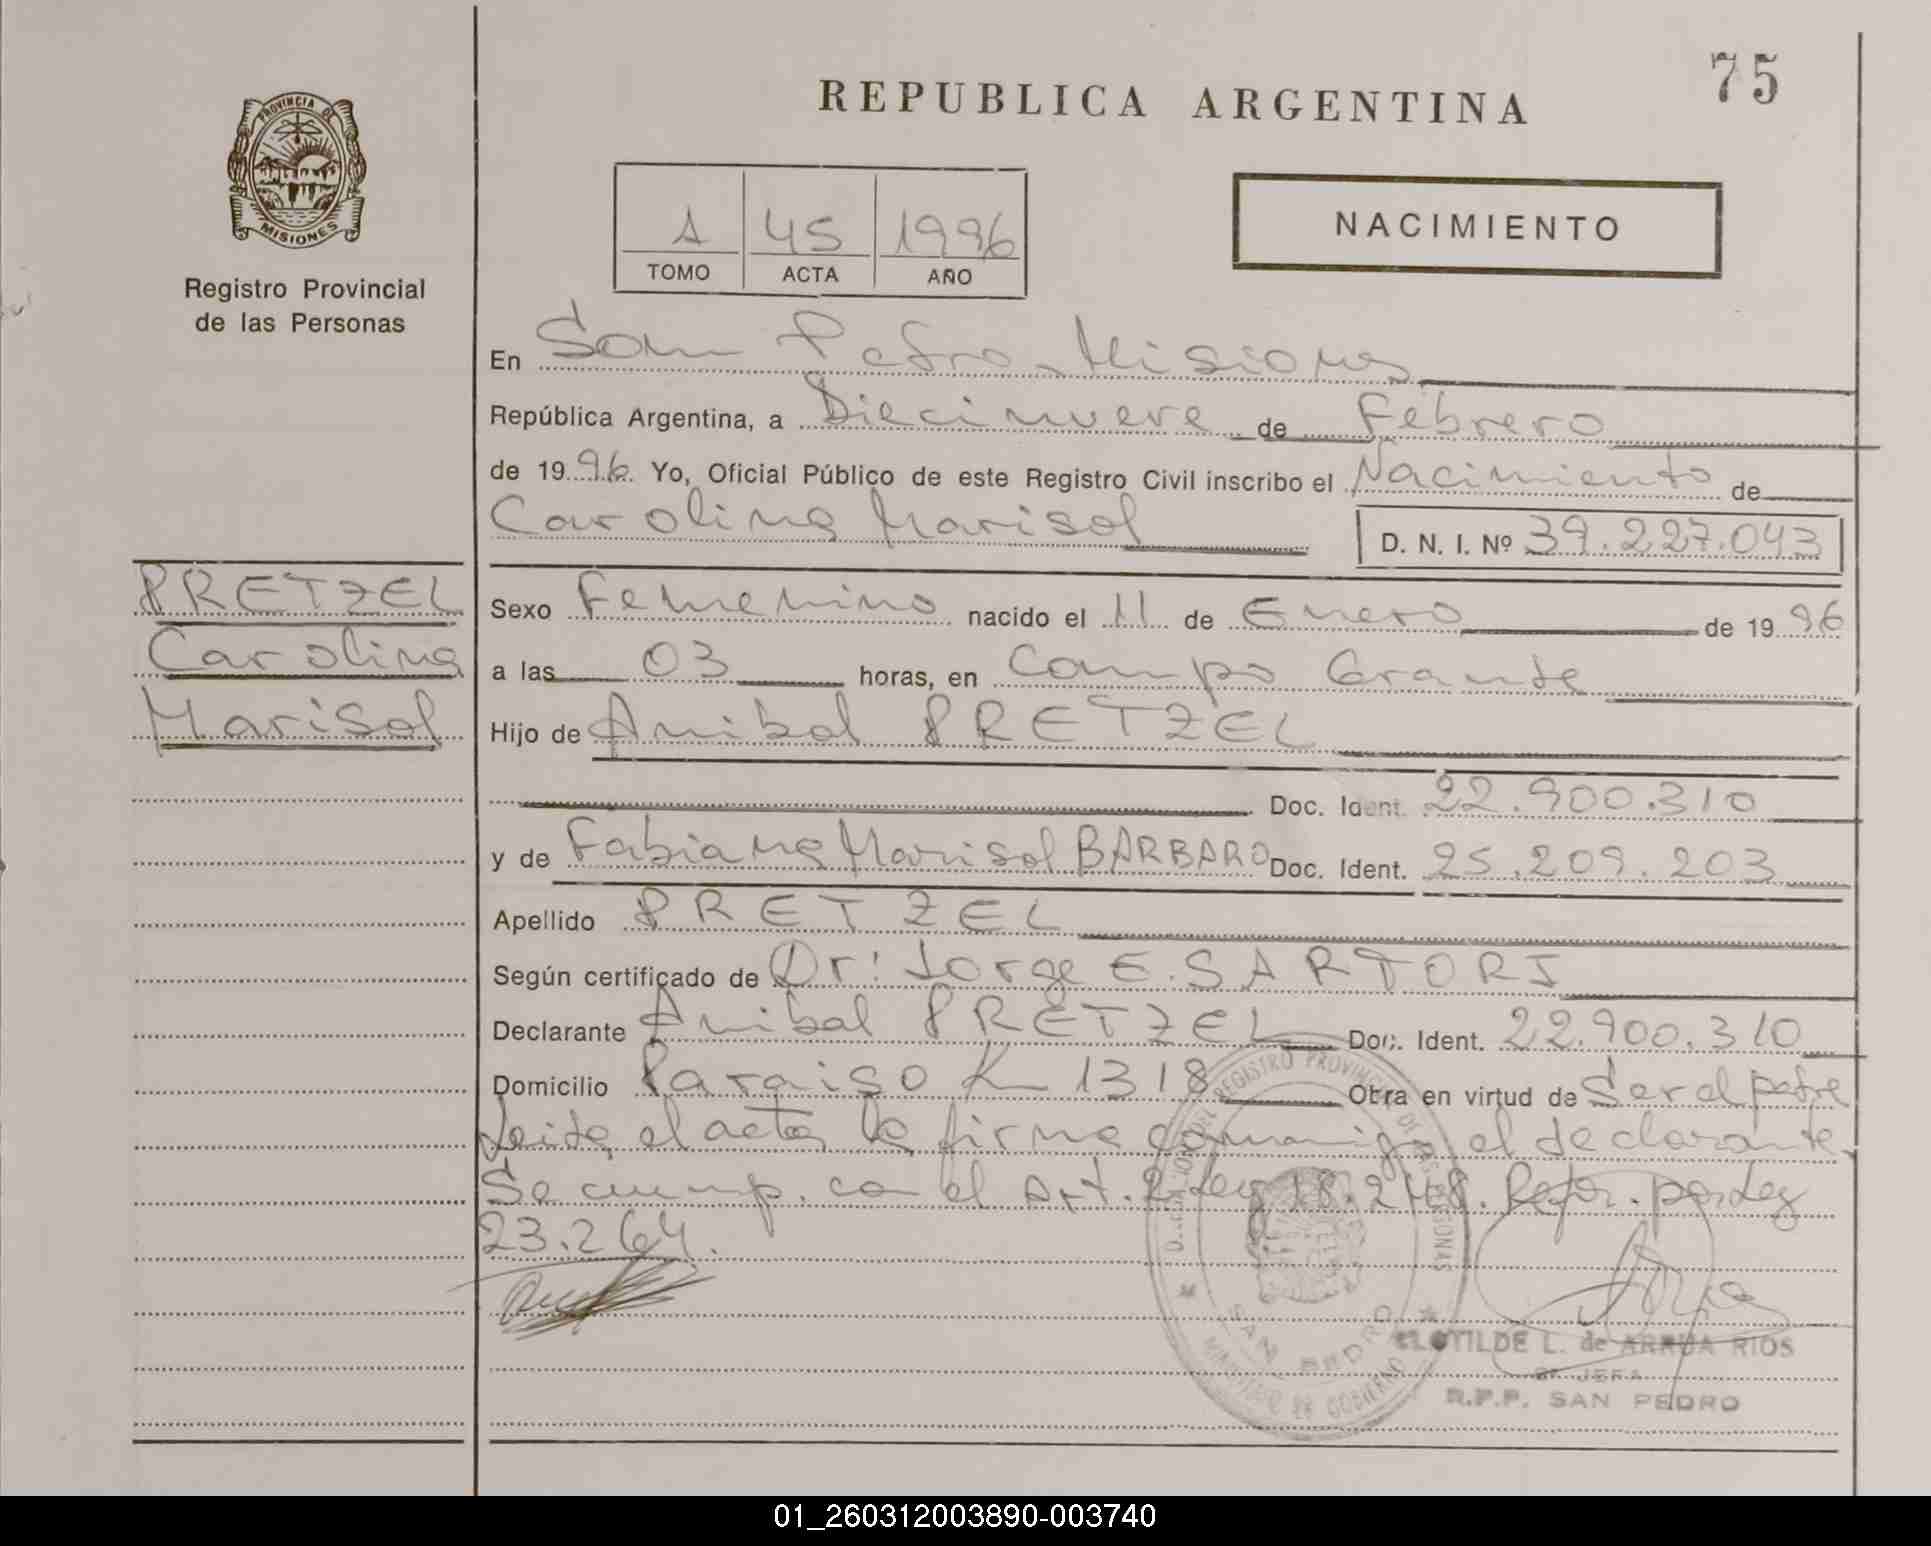 75
REPUBLICA ARGENTINA
PROVINCIA DE
MISIONES
Registro Provincial
de las Personas
1 45 1996
TOMO ACTA AÑO
NACIMIENTO
En San Pedro Misiones
República Argentina, a Diecinueve de Febrero
de 1996. Yo, Oficial Público de este Registro Civil inscribo el Nacimiento de
Carolina Marisol D. N. I. Nº 39.227.043
PRETZEL
Carolina
Marisol
Sexo Femenino nacido el 11 de Enero de 1996
a las 03 horas, en Campo Grande
Hijo de Anibal PRETZEL
Doc. Ident. 22.900.310
y de Fabiana Marisol BARBARO Doc. Ident. 25.209.203
Apellido PRETZEL
Según certificado de Dr: Jorge E. SARTORI
Declarante Anibal PRETZEL Doc. Ident. 22.900.310
Domicilio Paraiso K 1318 Obra en virtud de Ser el padre
Leida el acta la firma conmigo el declarante.
Se cump. con el Art. 2 Ley 18.248. Refor. por Ley
23.264.
REGISTRO PROVINCIAL DE LAS PERSONAS
SAN PEDRO
MINISTERIO DE GOBIERNO
CLOTILDE L. de ARRUA RIOS
JEFA
R.P.P. SAN PEDRO
01_260312003890-003740